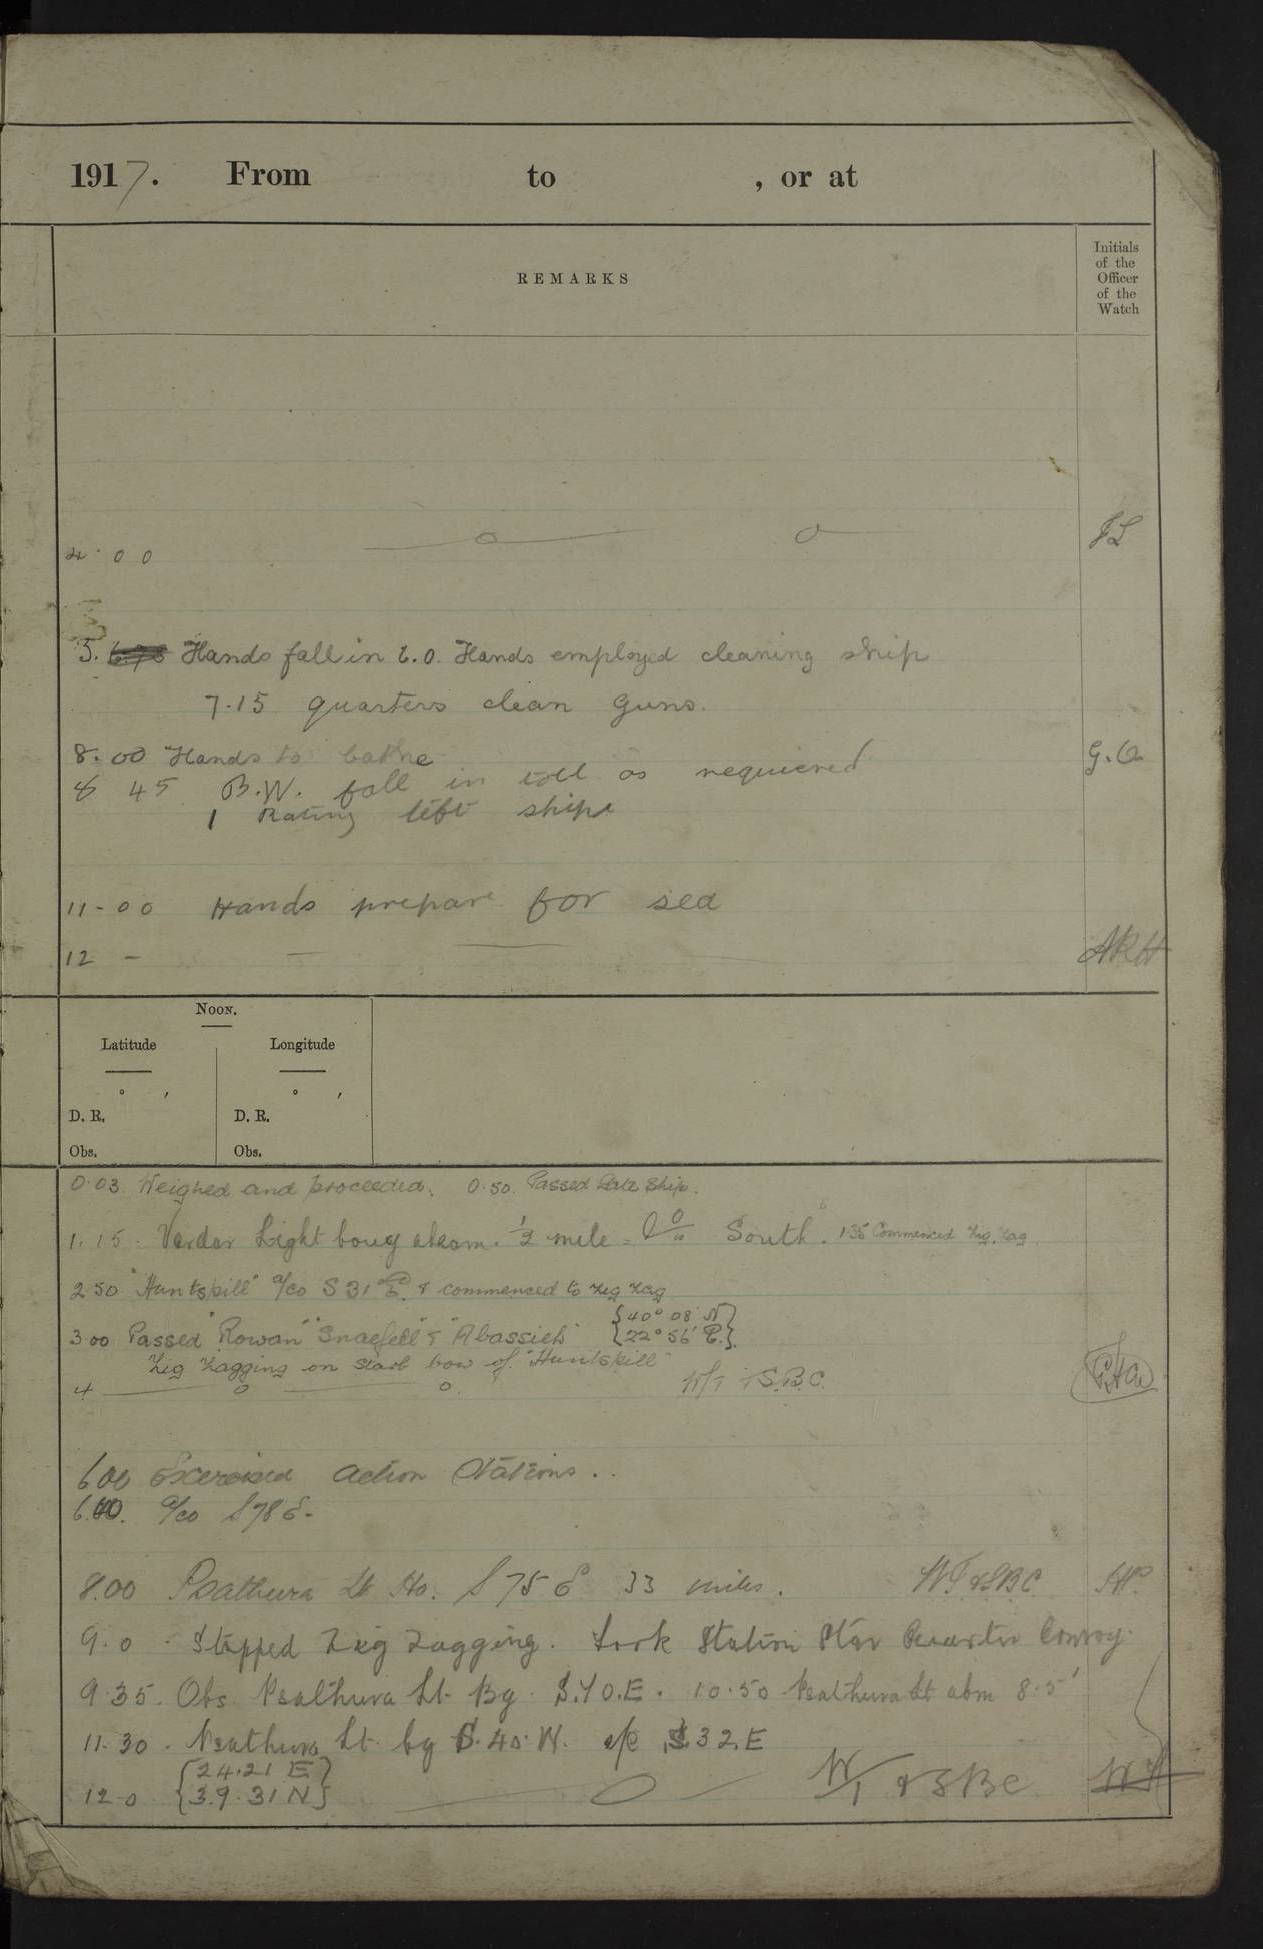 1917. From to , or at
REMARKS
Initials
of the
Officer
of the
Watch
4.00 JL
5. Hands fall in 6.0. Hands employed cleaning ship
7.15 quarters clean Guns.
8.00 Hands to bathe G.A.
8 45 B.W. fall in told as requiered
1 Rating left ship
11-00 Hands prepare for sea
12 - ARH
Noon.
Latitude Longitude
° ′ ° ′
D. R. D. R.
Obs. Obs.
0.03. Weighed and proceeded. 0.50. Passed Gate Ship.
1.15. Vardar Light bouy abeam. ½ mile - South. 1.35 Commenced Zig. Zag.
2.50 "Huntspill" a/co S 31 E. & commenced to zig zag
3.00 Passed "Rowan" "Snaefell" & "Abassieh" {40° 08' N} {22° 56' E.}
Zig zagging on starb bow of. "Huntspill"
4 W/T & S.B.C.
6.00 Exercised Action Stations..
6.00. a/co S 78 E.
8.00 Psathura Lt Ho. S 75 E 33 miles. W.T & S.B.C
9.0 - Stopped Zig Zagging. Took Station Star Quarter Convoy.
9.35. Obs Psathura Lt. Bg. S.70.E. 10.50 Psathura Lt abm 8.5'
11.30. Psathura Lt. bg S. 40. W. a/c S.32.E
{24.21 E}
12.0 {39.31 N} W/T & SBC